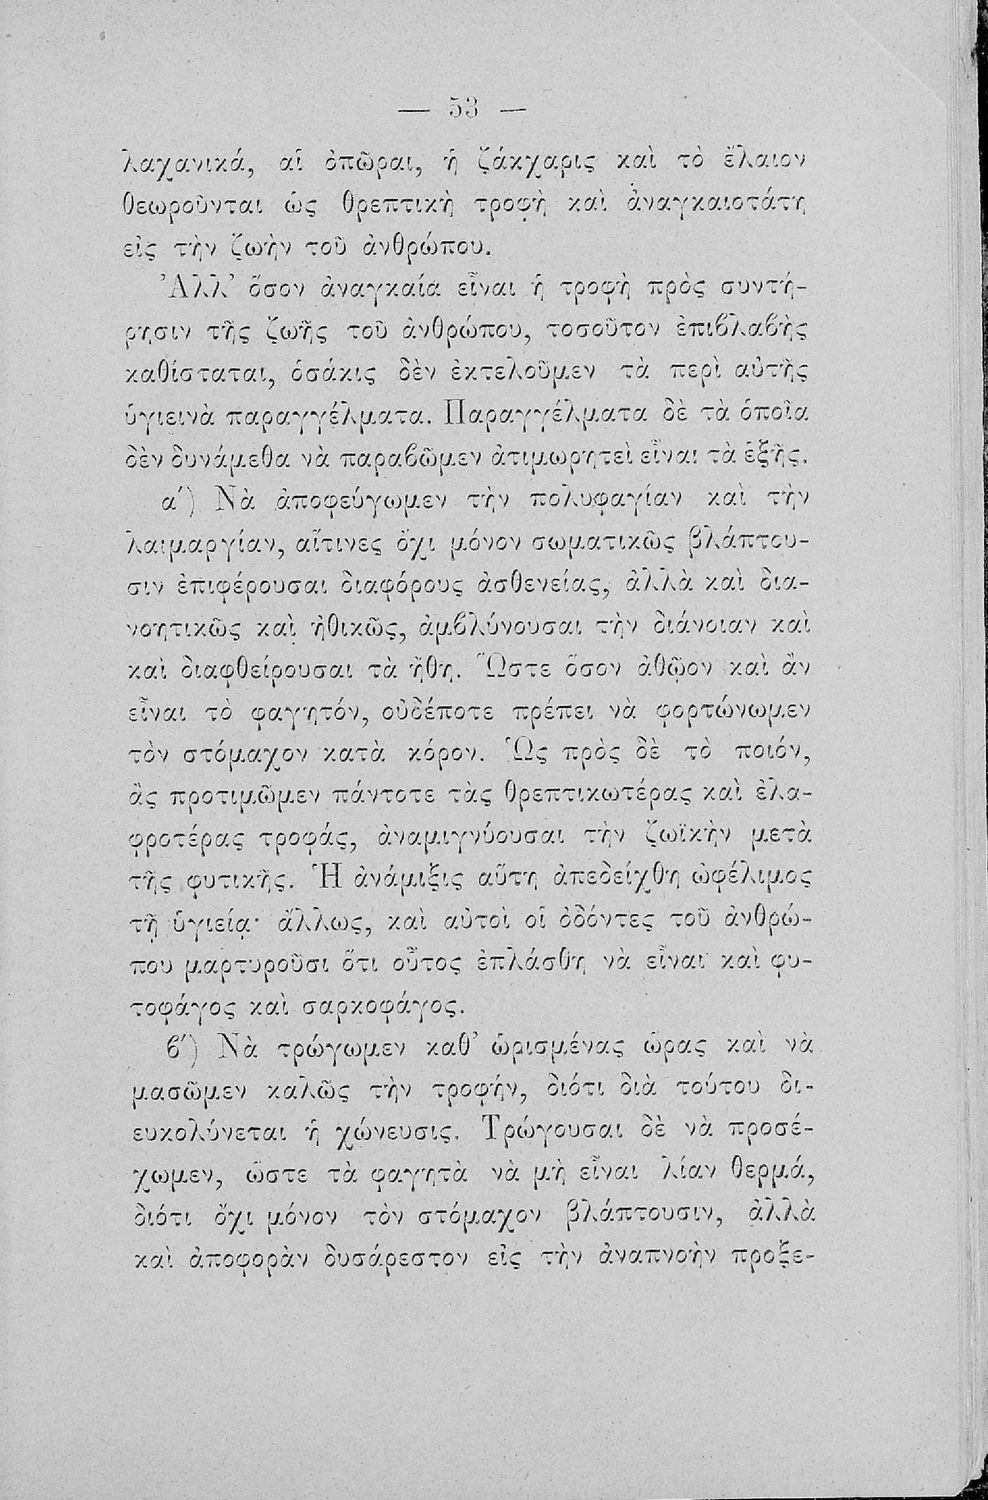 — 53 —
λαχανικά, αἱ ὀπῶραι, ἡ ζάκχαρις καὶ τὸ ἔλαιον
θεωροῦνται ὡς θρεπτικὴ τροφὴ καὶ ἀναγκαιοτάτη
εἰς τὴν ζωὴν τοῦ ἀνθρώπου.
Ἀλλ’ ὅσον ἀναγκαία εἶναι ἡ τροφὴ πρὸς συντή-
ρησιν τῆς ζωῆς τοῦ ἀνθρώπου, τοσοῦτον ἐπιβλαβὴς
καθίσταται, ὁσάκις δὲν ἐκτελοῦμεν τὰ περὶ αὐτῆς
ὑγιεινὰ παραγγέλματα. Παραγγέλματα δὲ τὰ ὁποῖα
δὲν δυνάμεθα νὰ παραβῶμεν ἀτιμωρητεὶ εἶναι τὰ ἑξῆς.
α΄) Νὰ ἀποφεύγωμεν τὴν πολυφαγίαν καὶ τὴν
λαιμαργίαν, αἵτινες ὄχι μόνον σωματικῶς βλάπτου-
σιν ἐπιφέρουσαι διαφόρους ἀσθενείας, ἀλλὰ καὶ δια-
νοητικῶς καὶ ἠθικῶς, ἀμβλύνουσαι τὴν διάνοιαν καὶ
καὶ διαφθείρουσαι τὰ ἤθη. Ὥστε ὅσον ἀθῷον καὶ ἂν
εἶναι τὸ φαγητόν, οὐδέποτε πρέπει νὰ φορτώνωμεν
τὸν στόμαχον κατὰ κόρον. Ὡς πρὸς δὲ τὸ ποιόν,
ἂς προτιμῶμεν πάντοτε τὰς θρεπτικωτέρας καὶ ἐλα-
φροτέρας τροφάς, ἀναμιγνύουσαι τὴν ζωϊκὴν μετὰ
τῆς φυτικῆς. Ἡ ἀνάμιξις αὕτη ἀπεδείχθη ὠφέλιμος
τῇ ὑγιείᾳ· ἄλλως, καὶ αὐτοὶ οἱ ὀδόντες τοῦ ἀνθρώ-
που μαρτυροῦσι ὅτι οὗτος ἐπλάσθη νὰ εἶναι καὶ φυ-
τοφάγος καὶ σαρκοφάγος.
β΄) Νὰ τρώγωμεν καθ’ ὡρισμένας ὥρας καὶ νὰ
μασῶμεν καλῶς τὴν τροφήν, διότι διὰ τούτου δι-
ευκολύνεται ἡ χώνευσις. Τρώγουσαι δὲ νὰ προσέ-
χωμεν, ὥστε τὰ φαγητὰ νὰ μὴ εἶναι λίαν θερμά,
διότι ὄχι μόνον τὸν στόμαχον βλάπτουσιν, ἀλλὰ
καὶ ἀποφορὰν δυσάρεστον εἰς τὴν ἀναπνοὴν προξε-